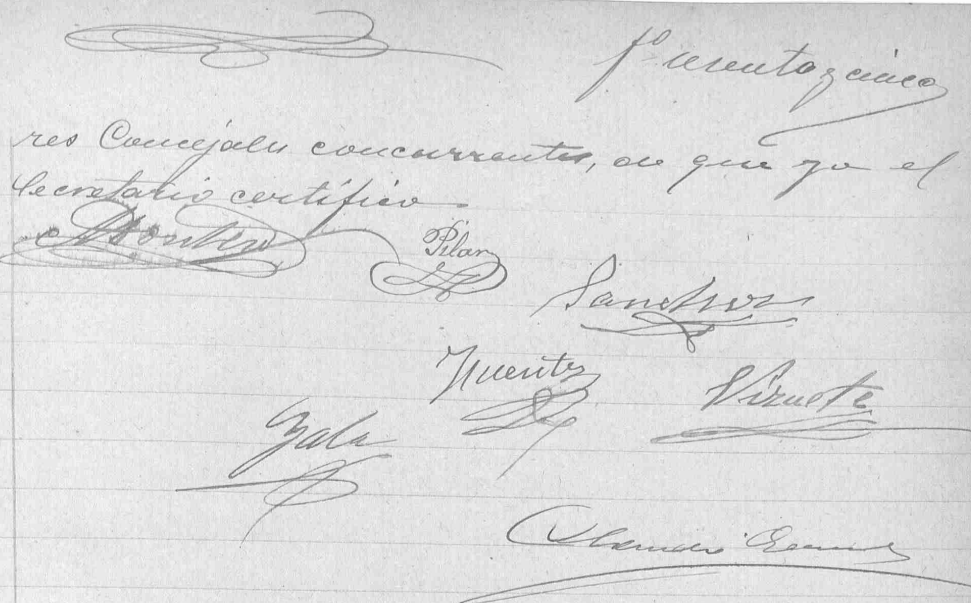 fº sesenta y cinco
res Concejales concurrentes, de que yo el
Secretario certifico.
Pilar
Sanchez
Fuentes
Vizuete
Gala